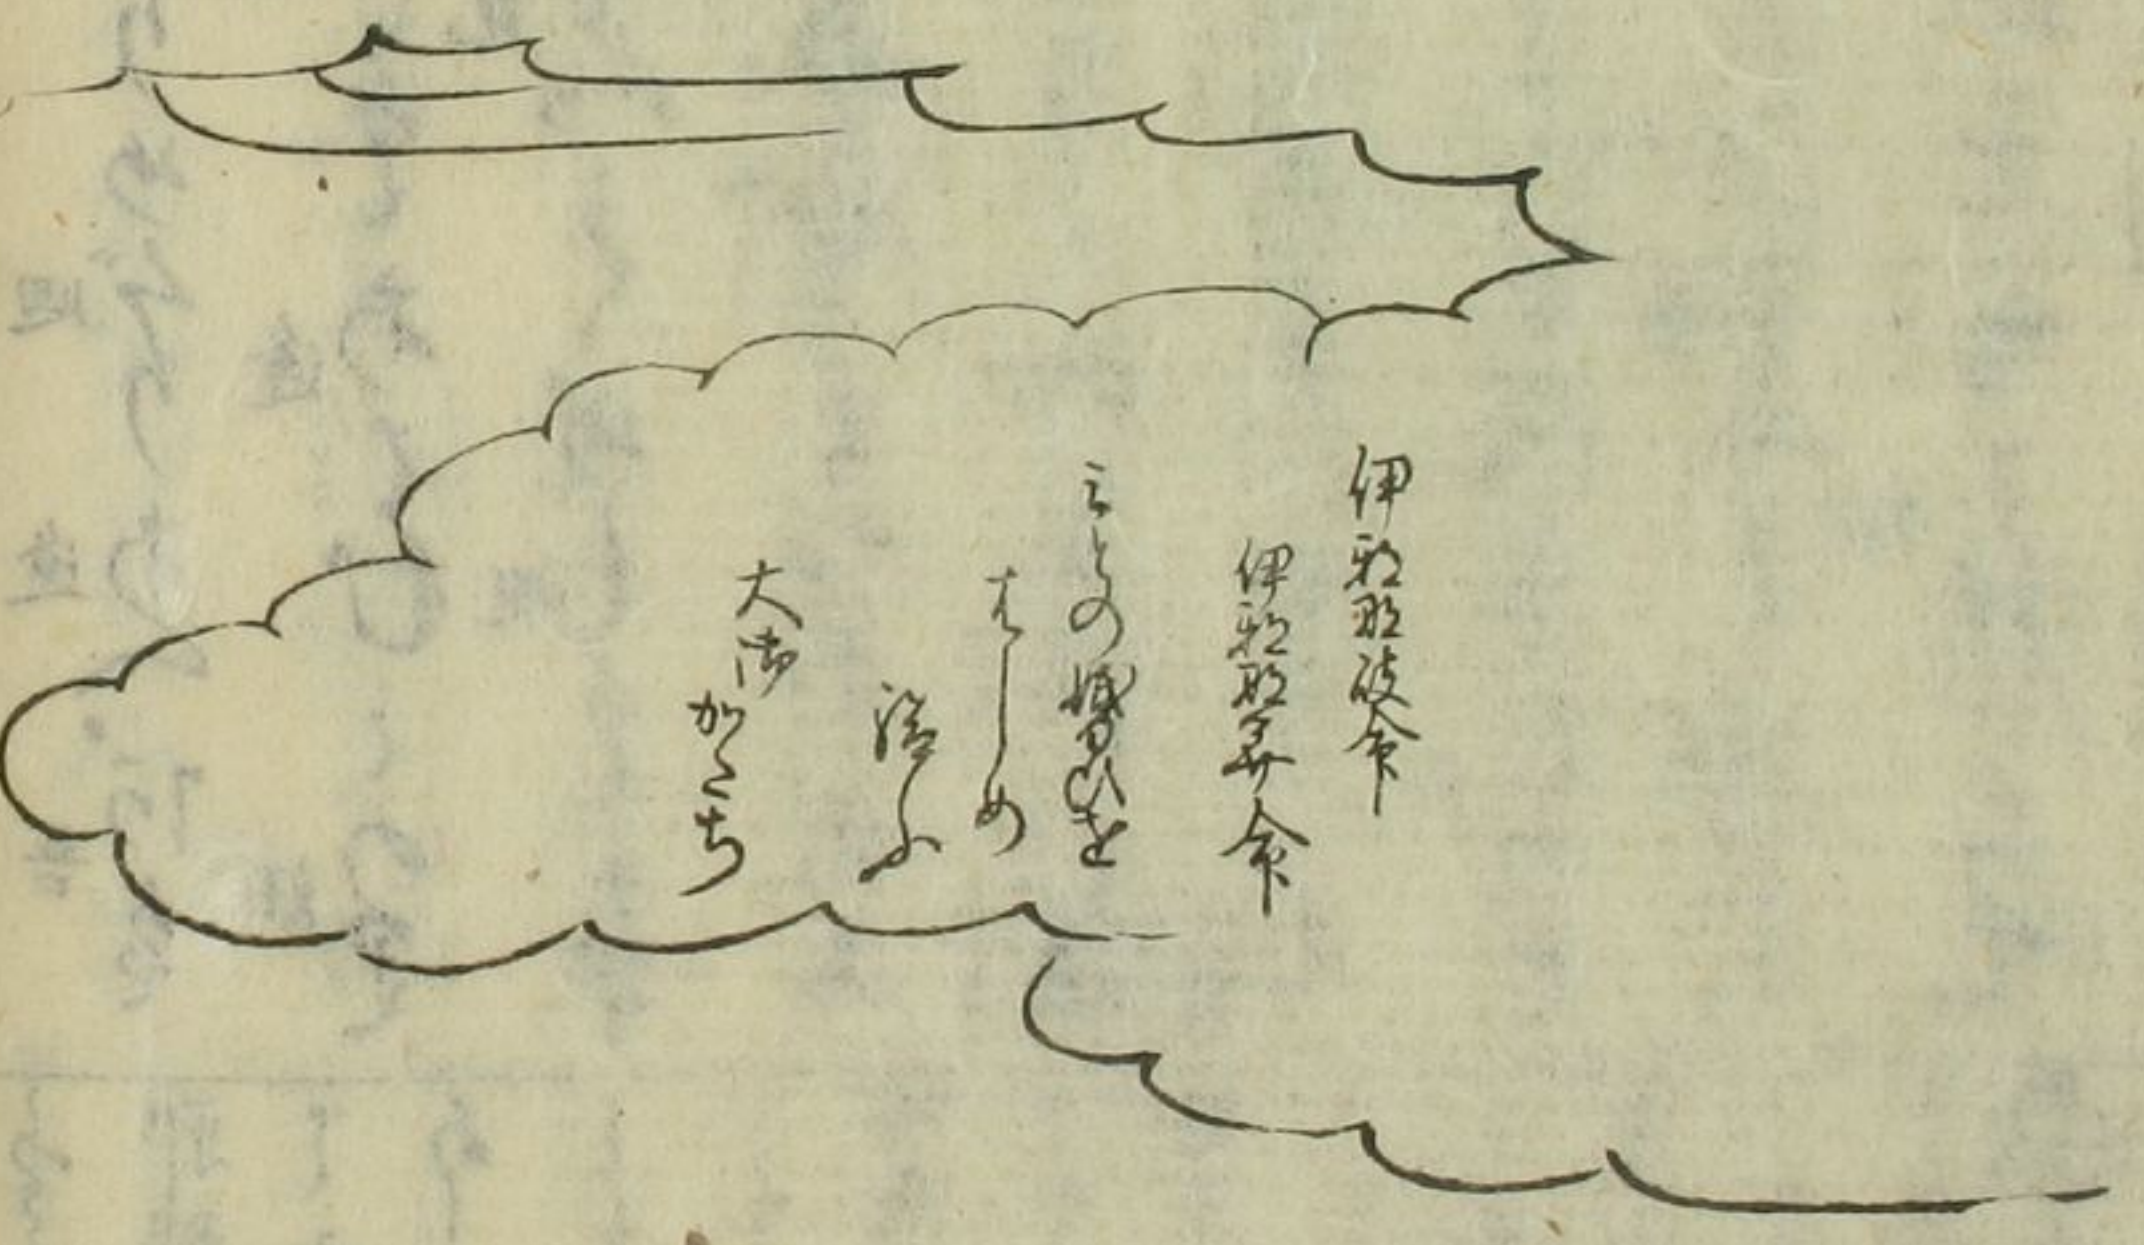 伊邪那岐命
伊邪那美命
ミとの婚ひを
はしめ
給ふ
大御かたち